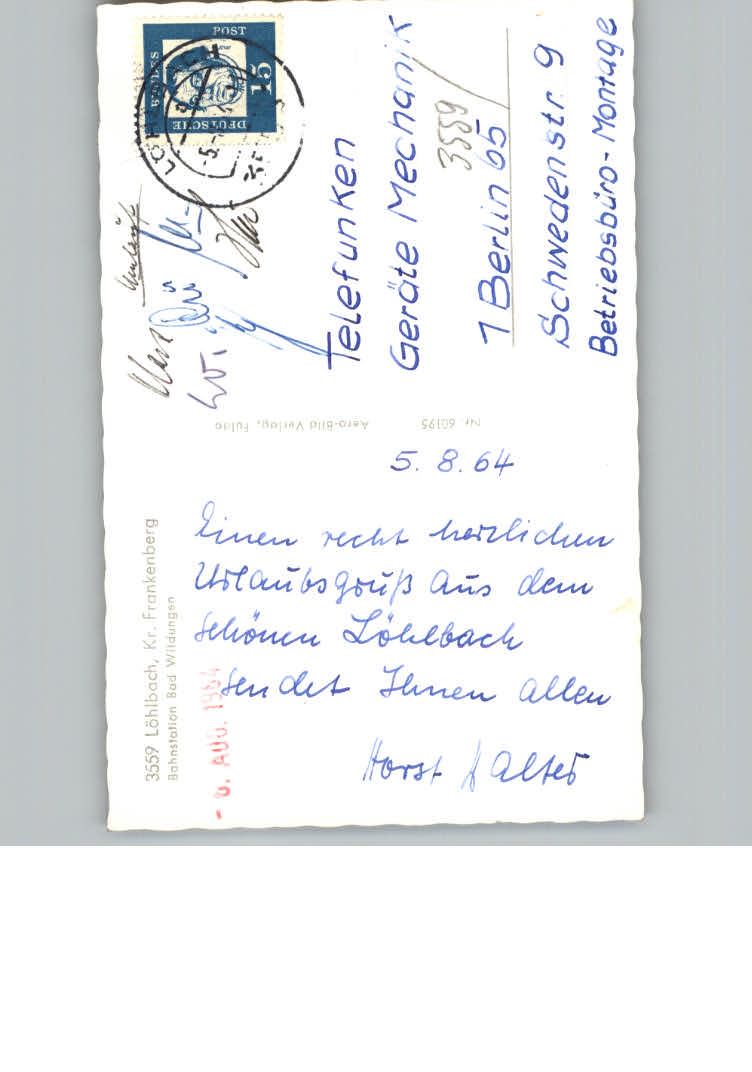 3559 Löhlbach, Kr. Frankenberg
Bahnstation Bad Wildungen
5. 8. 64
Einen recht herzlichen
Urlaubsgruß aus dem
schönen Löhlbach
sendet Ihnen allen
Horst
AUG. 1964
Aero-Bild Verlag, Fulda
Nr. 60195
DEUTSCHE
BUNDES
POST
15
Umlauf
Telefunken
Geräte Mechanik
3559
1 Berlin 65
Schwedenstr. 9
Betriebsbüro-Montage